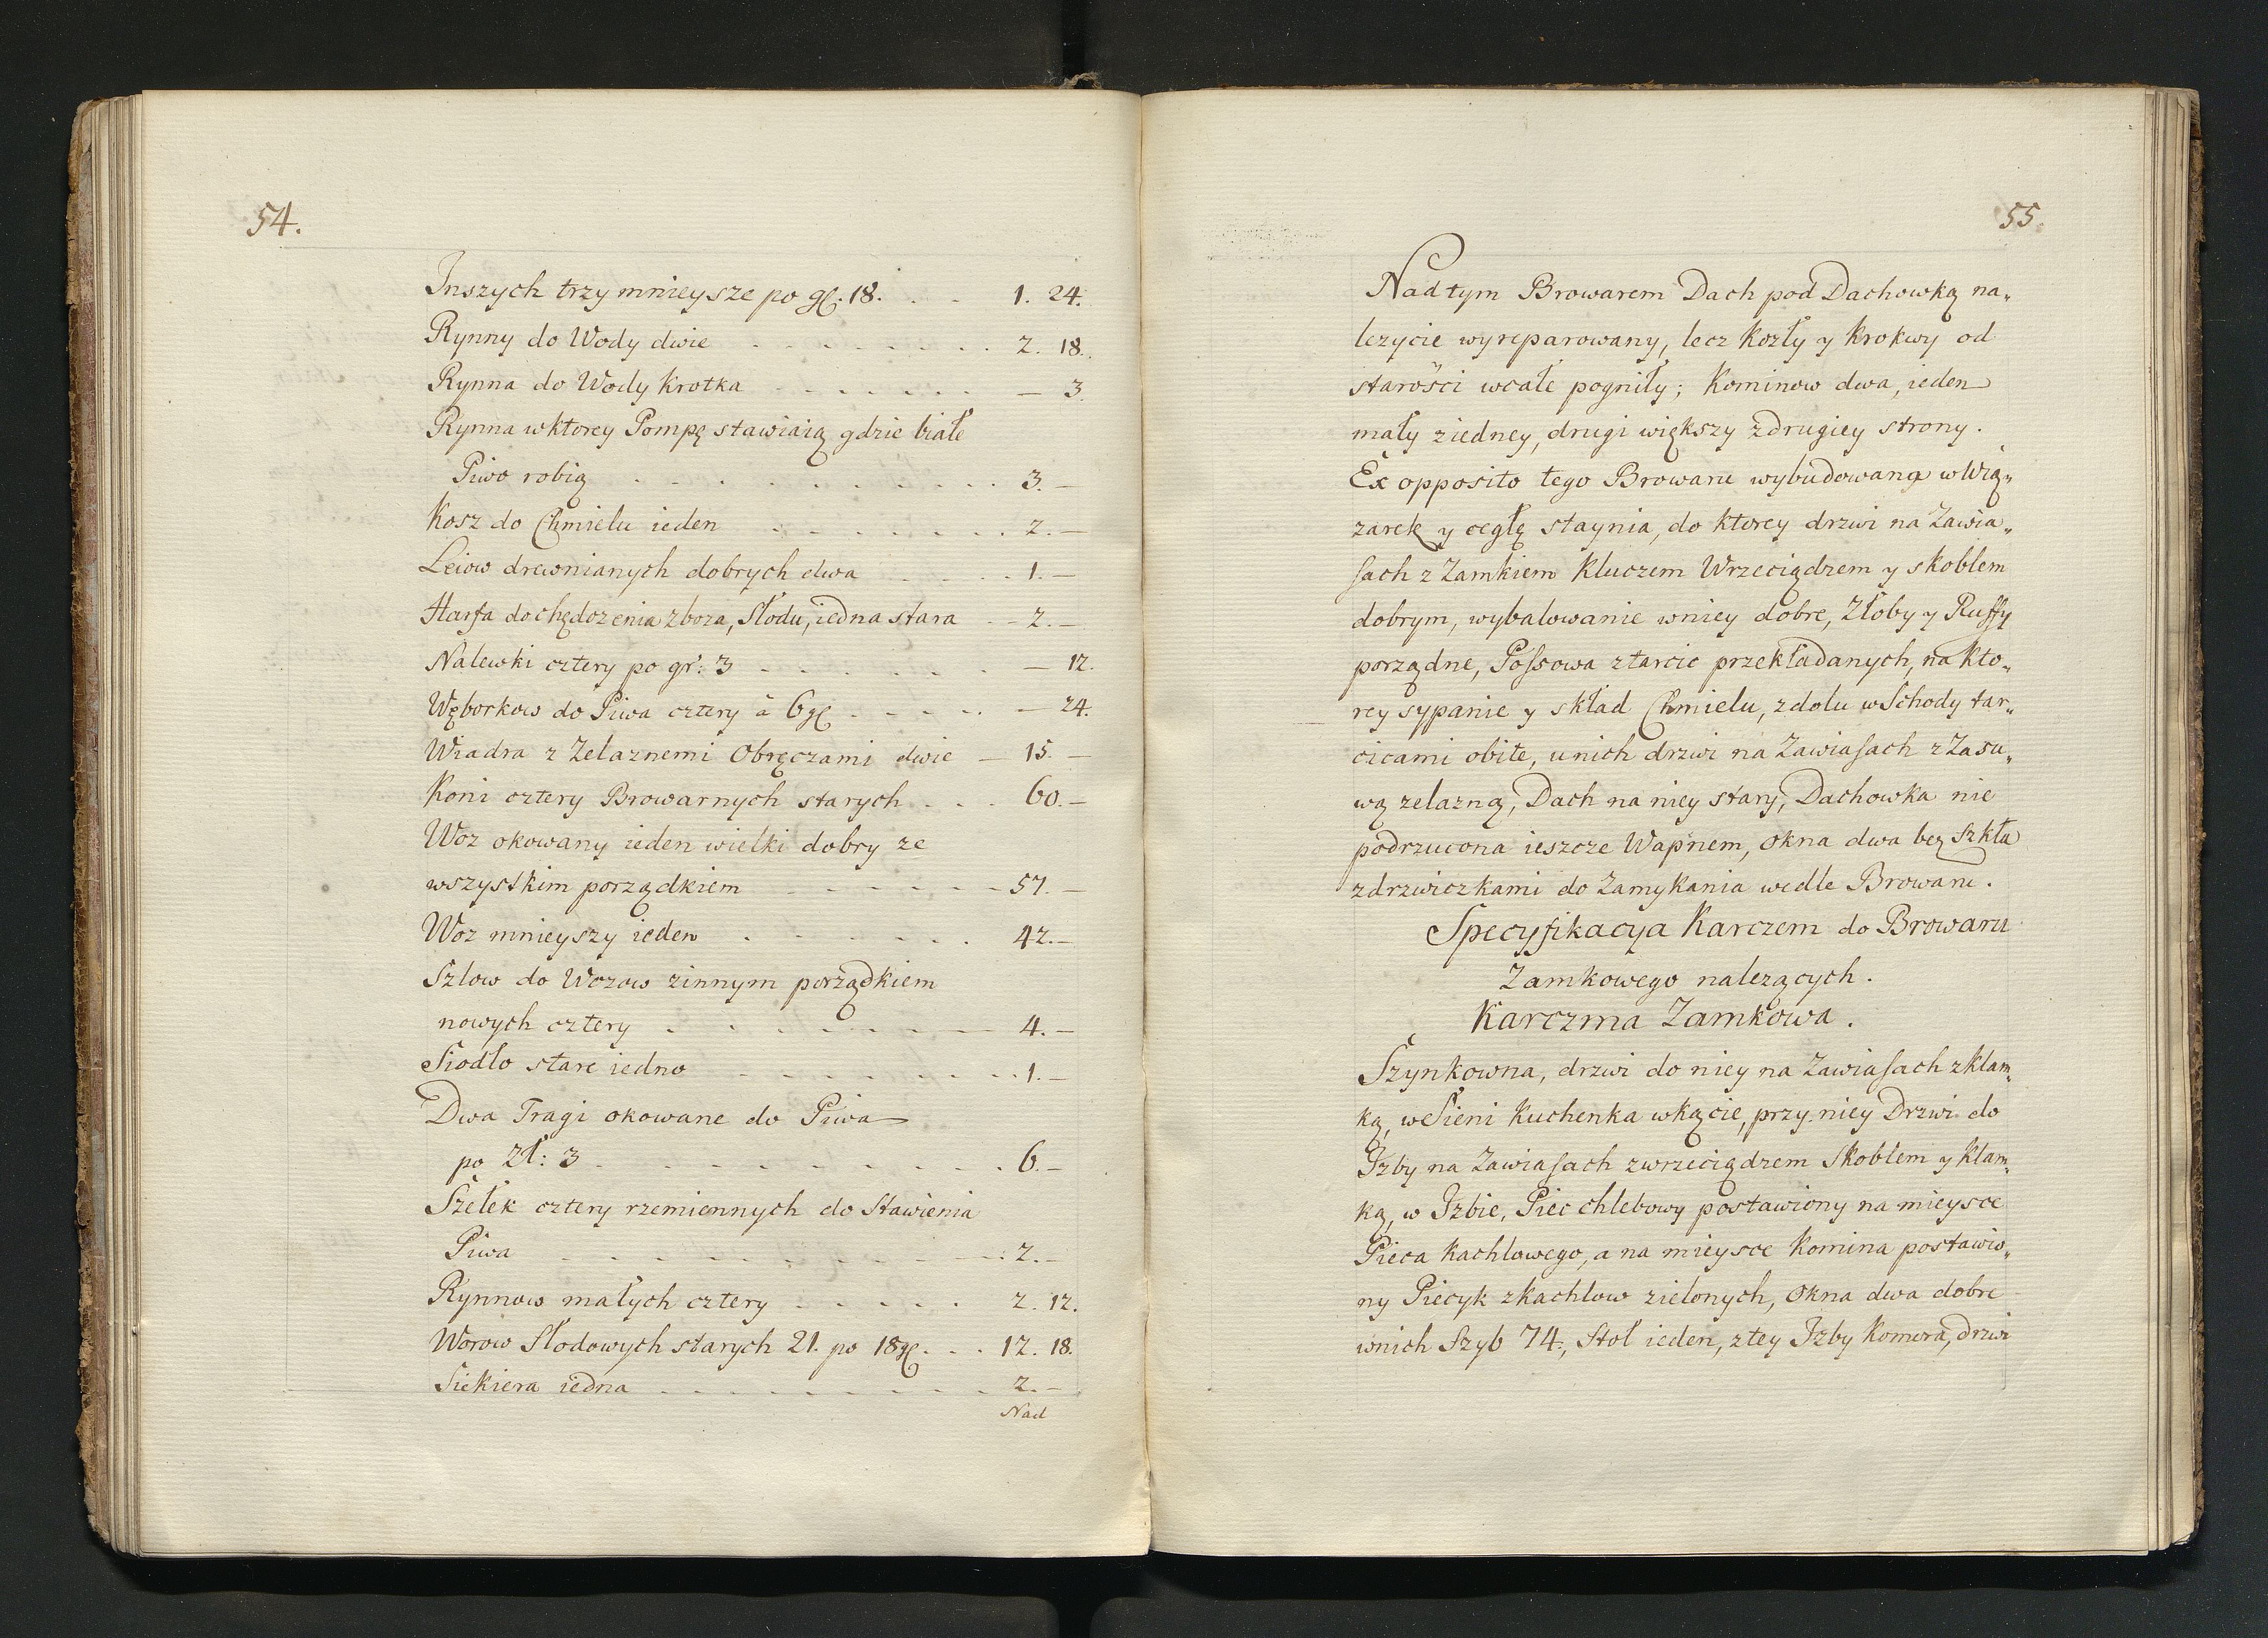 54.
Inszych trzy mnieysze po gl. 18. . . - 1. 24.
Rynny do Wody dwie - - - - - - - - 2. 18.
Rynna do Wody krotka - - - - - - — 3.
Rynna wktorey Pompę stawiaią gdzie białe
Piwo robią - - - - - - - - - 3. —
Kosz do Chmielu ieden - - - - - - 2. —
Leiow drewnianych dobrych dwa - - - - 1. —
Harfa dochędozenia zboza, Słodu, iedna stara - - 2. —
Nalewki cztery po gr: 3 - - - - - — 12.
Węborkow do Piwa cztery â 6 gl - - - - - — 24.
Wiadra z Zelaznemi Obręczami dwie — 15. —
Koni cztery Browarnych starych - - - 60. —
Woz okowany ieden wielki dobry ze
wszystkim porządkiem - - - - - - 57. —
Woz mnieyszy ieden - - - - - - 42. —
Szlow do Wozow zinnym porządkiem
nowych cztery - - - - - - - — 4. —
Siodło stare iedno - - - - - - - 1. —
Dwa Tragi okowane do Piwa
po Zł: 3 - - - - - - - - - 6. —
Szełek cztery rzemiennych do Stawienia
Piwa - - - - - - - - - 2. —
Rynnow małych cztery - - - - - 2. 12.
Worow Słodowych starych 21. po 18 gl. - - 12. 18.
Siekiera iedna - - - - - - - - 2. —
Nad
55.
Nad tym Browarem Dach pod Dachowką na„
lezycie wyreparowany, lecz Kozły y Krokwy od
starości wcale pogniły; Kominow dwa, ieden
mały ziedney, drugi większy zdrugiey strony.
Ex opposito tego Browaru wybudowana wWią„
zarek y cegłę staynia, do ktorey drzwi na Zawia„
sach z Zamkiem Kluczem Wrzeciądzem y skoblem
dobrym, wybalowanie wniey dobre, Złoby y Ruffy
porządne, Possowa ztarcic przekładanych, na kto„
rey sypanie y skład Chmielu, zdolu wSchody tar„
cicami obite, unich drzwi na Zawiasach z Zasu„
wą zelazną, Dach na niey stary, Dachowka nie
podrzucona ieszcze Wapnem, okna dwa bez Szkła
zdrzwiczkami do Zamykania wedle Browaru.
Specyfikacya Karczem do Browaru
Zamkowego nalezących.
Karczma Zamkowa.
Szynkowna, drzwi do niey na Zawiasach zklam„
ką, wSieni Kuchenka wkącie, przy niey Drzwi do
Izby na Zawiasach zwrzeciądzem Skoblem y klam„
ką, w Izbie, Piec chlebowy postawiony na mieysce
Pieca Kachlowego, a na mieysce Komina postawio„
ny Piecyk zkachlow zielonych, Okna dwa dobre
wnich Szyb 74., Stoł ieden, ztey Izby Komora, drzwi